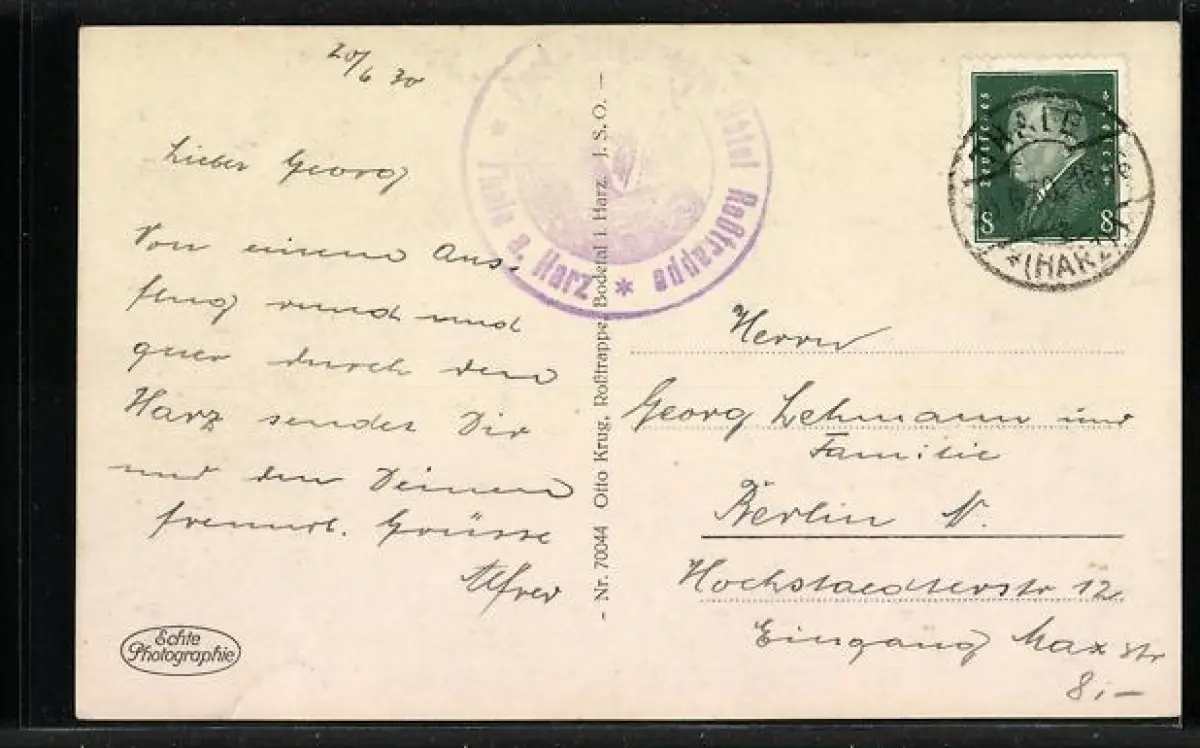 20/6 30
Lieber Georg
Von einem Aus-
flug rund und
quer durch den
Harz sendet Dir
und den Deinen
freundl. Grüsse
Alfred
Echte
Photographie
- Nr. 70044 Otto Krug, Roßtrappe, Bodetal i. Harz. J. S. O. -
Hotel Roßtrappe
* Thale a. Harz *
Deutsches Reich
8 8
THALE
*(HARZ)
Herrn
Georg Lehmann und
Familie
Berlin N.
Hochstaedterstr 12
Eingang Max str
8,-